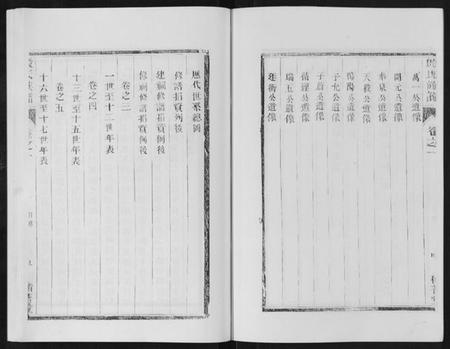 卷之一
萬一公遺像
開元公遺像
奉泉公遺像
天敘公遺像
鳴陽公遺像
子允公遺像
子蔚公遺像
瑞五公遺像
廷衡公遺像
歷代世系總圖
修譜捐貲列後
建祠修譜捐貲例後
修祠修譜捐貲例後
卷之三
一世至十二世年表
卷之四
十三世至十五世年表
卷之五
十六世至十七世年表
目錄